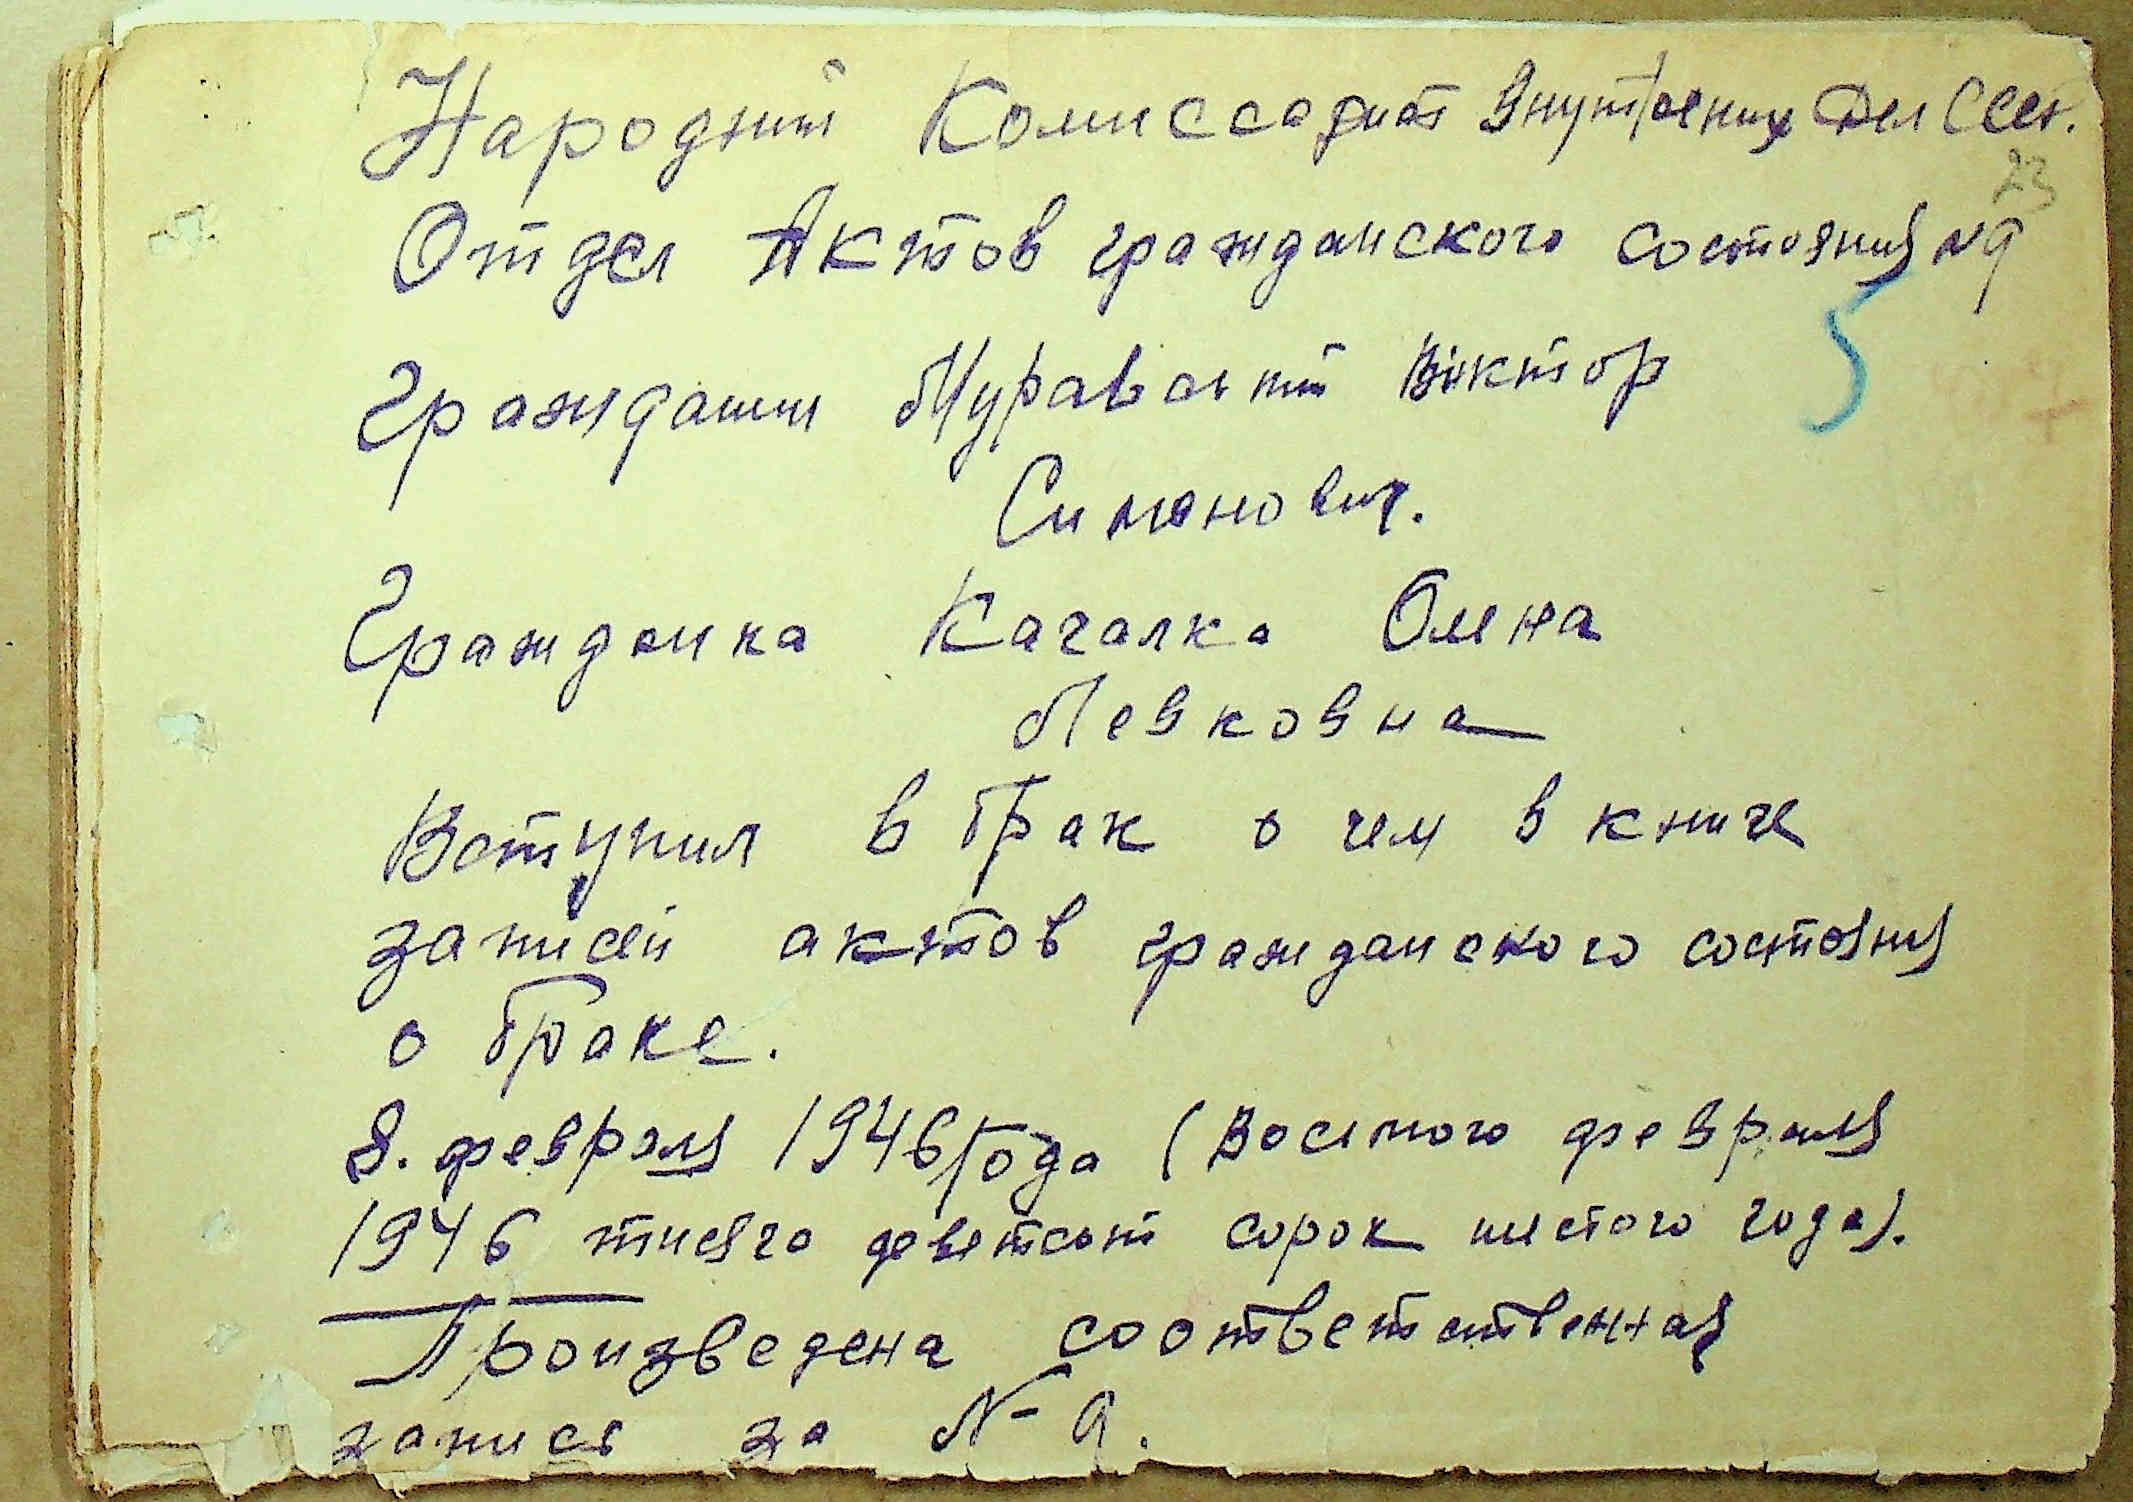 Народний Комиссариат Внутрених Дел СССР.
23
Отдел Актов гражданского состояния №9
Гражданин Муравский Виктор
Симонович.
Гражданка Качалка Олена
Левковна
Вступил в брак о чем в книге
записей актов гражданского состояния
о браке.
8. февраля 1946 Года (Восмого февраля
1946 тисяча деветсот сорок шестого года).
Произведена соответственная
запись за № 9.